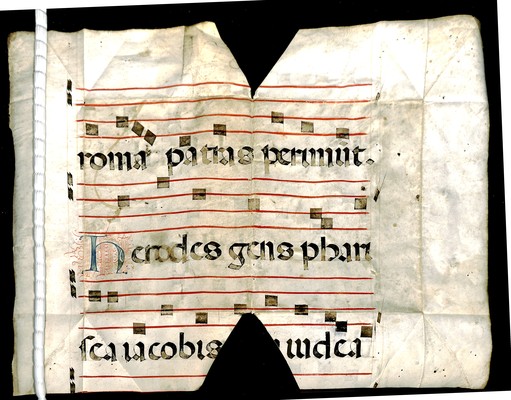 roma patras perimit.
herodes gens phari
sea iacobis iudea